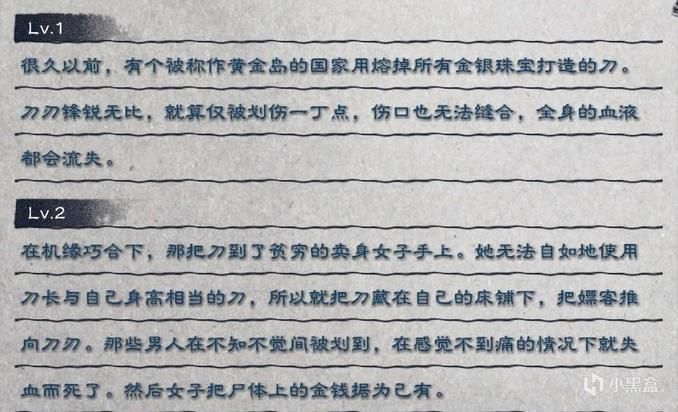 Lv.1
很久以前，有个被称作黄金岛的国家用熔掉所有金银珠宝打造的刀。
刀刃锋锐无比，就算仅被划伤一丁点，伤口也无法缝合，全身的血液
都会流失。
Lv.2
在机缘巧合下，那把刀到了贫穷的卖身女子手上。她无法自如地使用
刀长与自己身高相当的刀，所以就把刀藏在自己的床铺下，把嫖客推
向刀刃。那些男人在不知不觉间被划到，在感觉不到痛的情况下就失
血而死了。然后女子把尸体上的金钱据为己有。
小黑盒